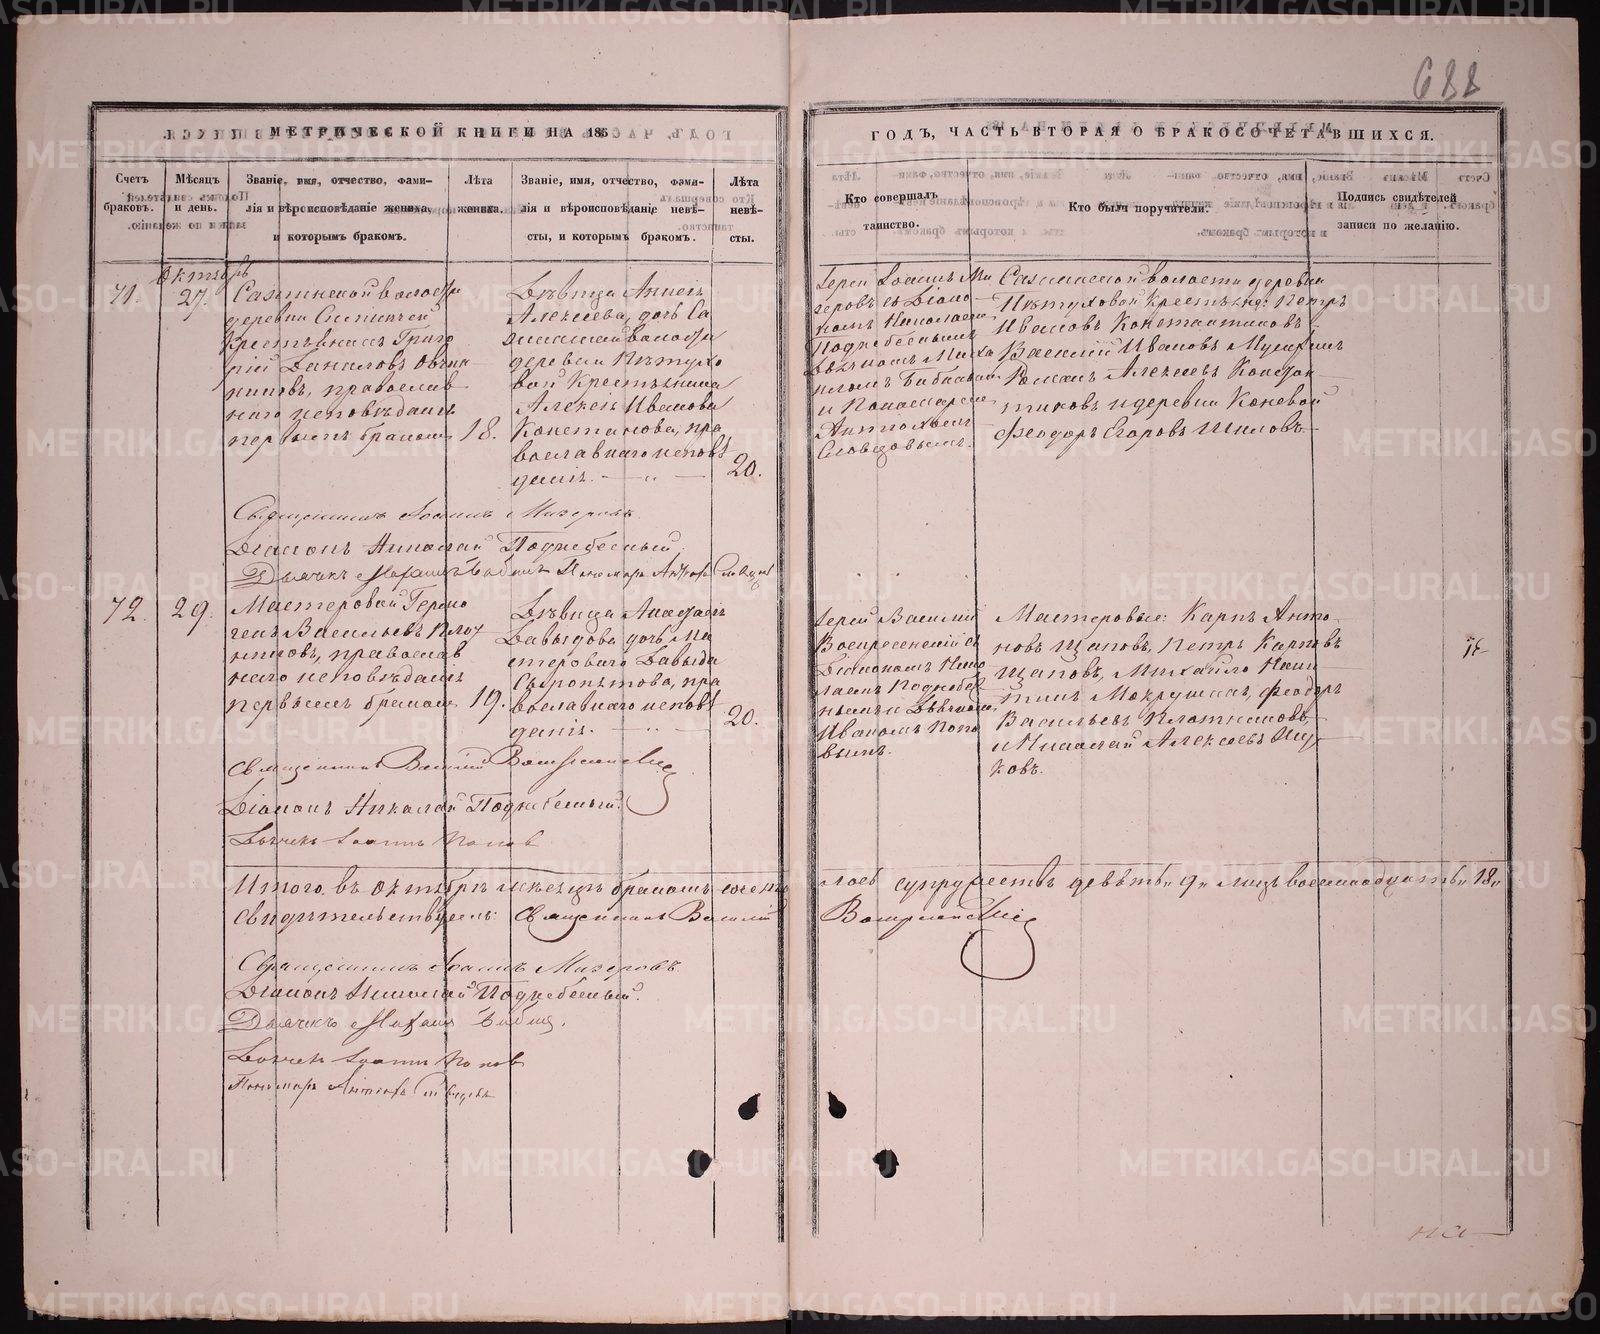 688
МЕТРИЧЕСКОЙ КНИГИ НА 185
ГОДЪ, ЧАСТЬ ВТОРАЯ О БРАКОСОЧЕТАВШИХСЯ.
Счетъ браковъ.
Мѣсяцъ и день.
Званіе, имя, отчество, фами-
лія и вѣроисповѣданіе жениха,
и которымъ бракомъ.
Лѣта жениха.
Званіе, имя, отчество, фами-
лія и вѣроисповѣданіе невѣ-
сты, и которымъ бракомъ.
Лѣта невѣ-
сты.
Кто совершалъ
таинство.
Кто были поручители.
Подпись свидѣтелей
записи по желанію.
Октябрь
71.
27.
волости
деревни
Крестьянинъ Григо
рій Даниловъ Овчи
нниковъ, православ
наго исповѣданія
первымъ бракомъ
18.
Дѣвица
Алексѣева, дочь Са
волости
деревни Пѣтухо
вой Крестьянина
Алексѣя Иванова
пра
вославнаго исповѣ
данія.
20.
Іерей Іоаннъ Ми
зеровъ съ Діако
номъ Николаемъ
Поднебеснымъ
Дьячкомъ Миха
иломъ
и Пономаремъ
волости деревни
Пѣтуховой Крестьяне: Петръ
Ивановъ Константиновъ
Василій Ивановъ
Романъ Алексѣевъ Констан
тиновъ и деревни Коневой
Феодоръ Егоровъ Шиловъ.
Священникъ Іоаннъ Мизеровъ
Діаконъ Николай Поднебесный
Дьячекъ Михаилъ Пономарь
72.
29.
Мастеровой Гермо
генъ Васильевъ Плот
никовъ, православ
наго исповѣданія
первымъ бракомъ
19.
Дѣвица
Давыдова дочь Ма
стероваго Давыда
Сыропятова, пра
вославнаго исповѣ
данія.
20.
Іерей Василій
Воскресенскій съ
Діакономъ Нико
лаемъ Поднебес
нымъ и Дьячкомъ
Иваномъ Попо
вымъ.
Мастеровые: Карпъ Анто
новъ Щаповъ, Петръ Карповъ
Щаповъ, Михайло Ники
тинъ Мокрушинъ, Феодоръ
Васильевъ Плотниковъ
и Николай Алексѣевъ
ковъ.
Священникъ Василій Воскресенскій
Діаконъ Николай Поднебесный.
Дьячекъ Іоаннъ Поповъ
Итого въ Октябрѣ мѣсяцѣ бракомъ
супружествъ девять „9„ лицъ восемнадцать „18„
Свидѣтельствуемъ: Священникъ Василій Воскресенскій
Священникъ Іоаннъ Мизеровъ
Діаконъ Николай Поднебесный.
Дьячекъ Михаилъ
Дьячекъ Іоаннъ Поповъ
Пономарь
METRIKI.GASO-URAL.RU